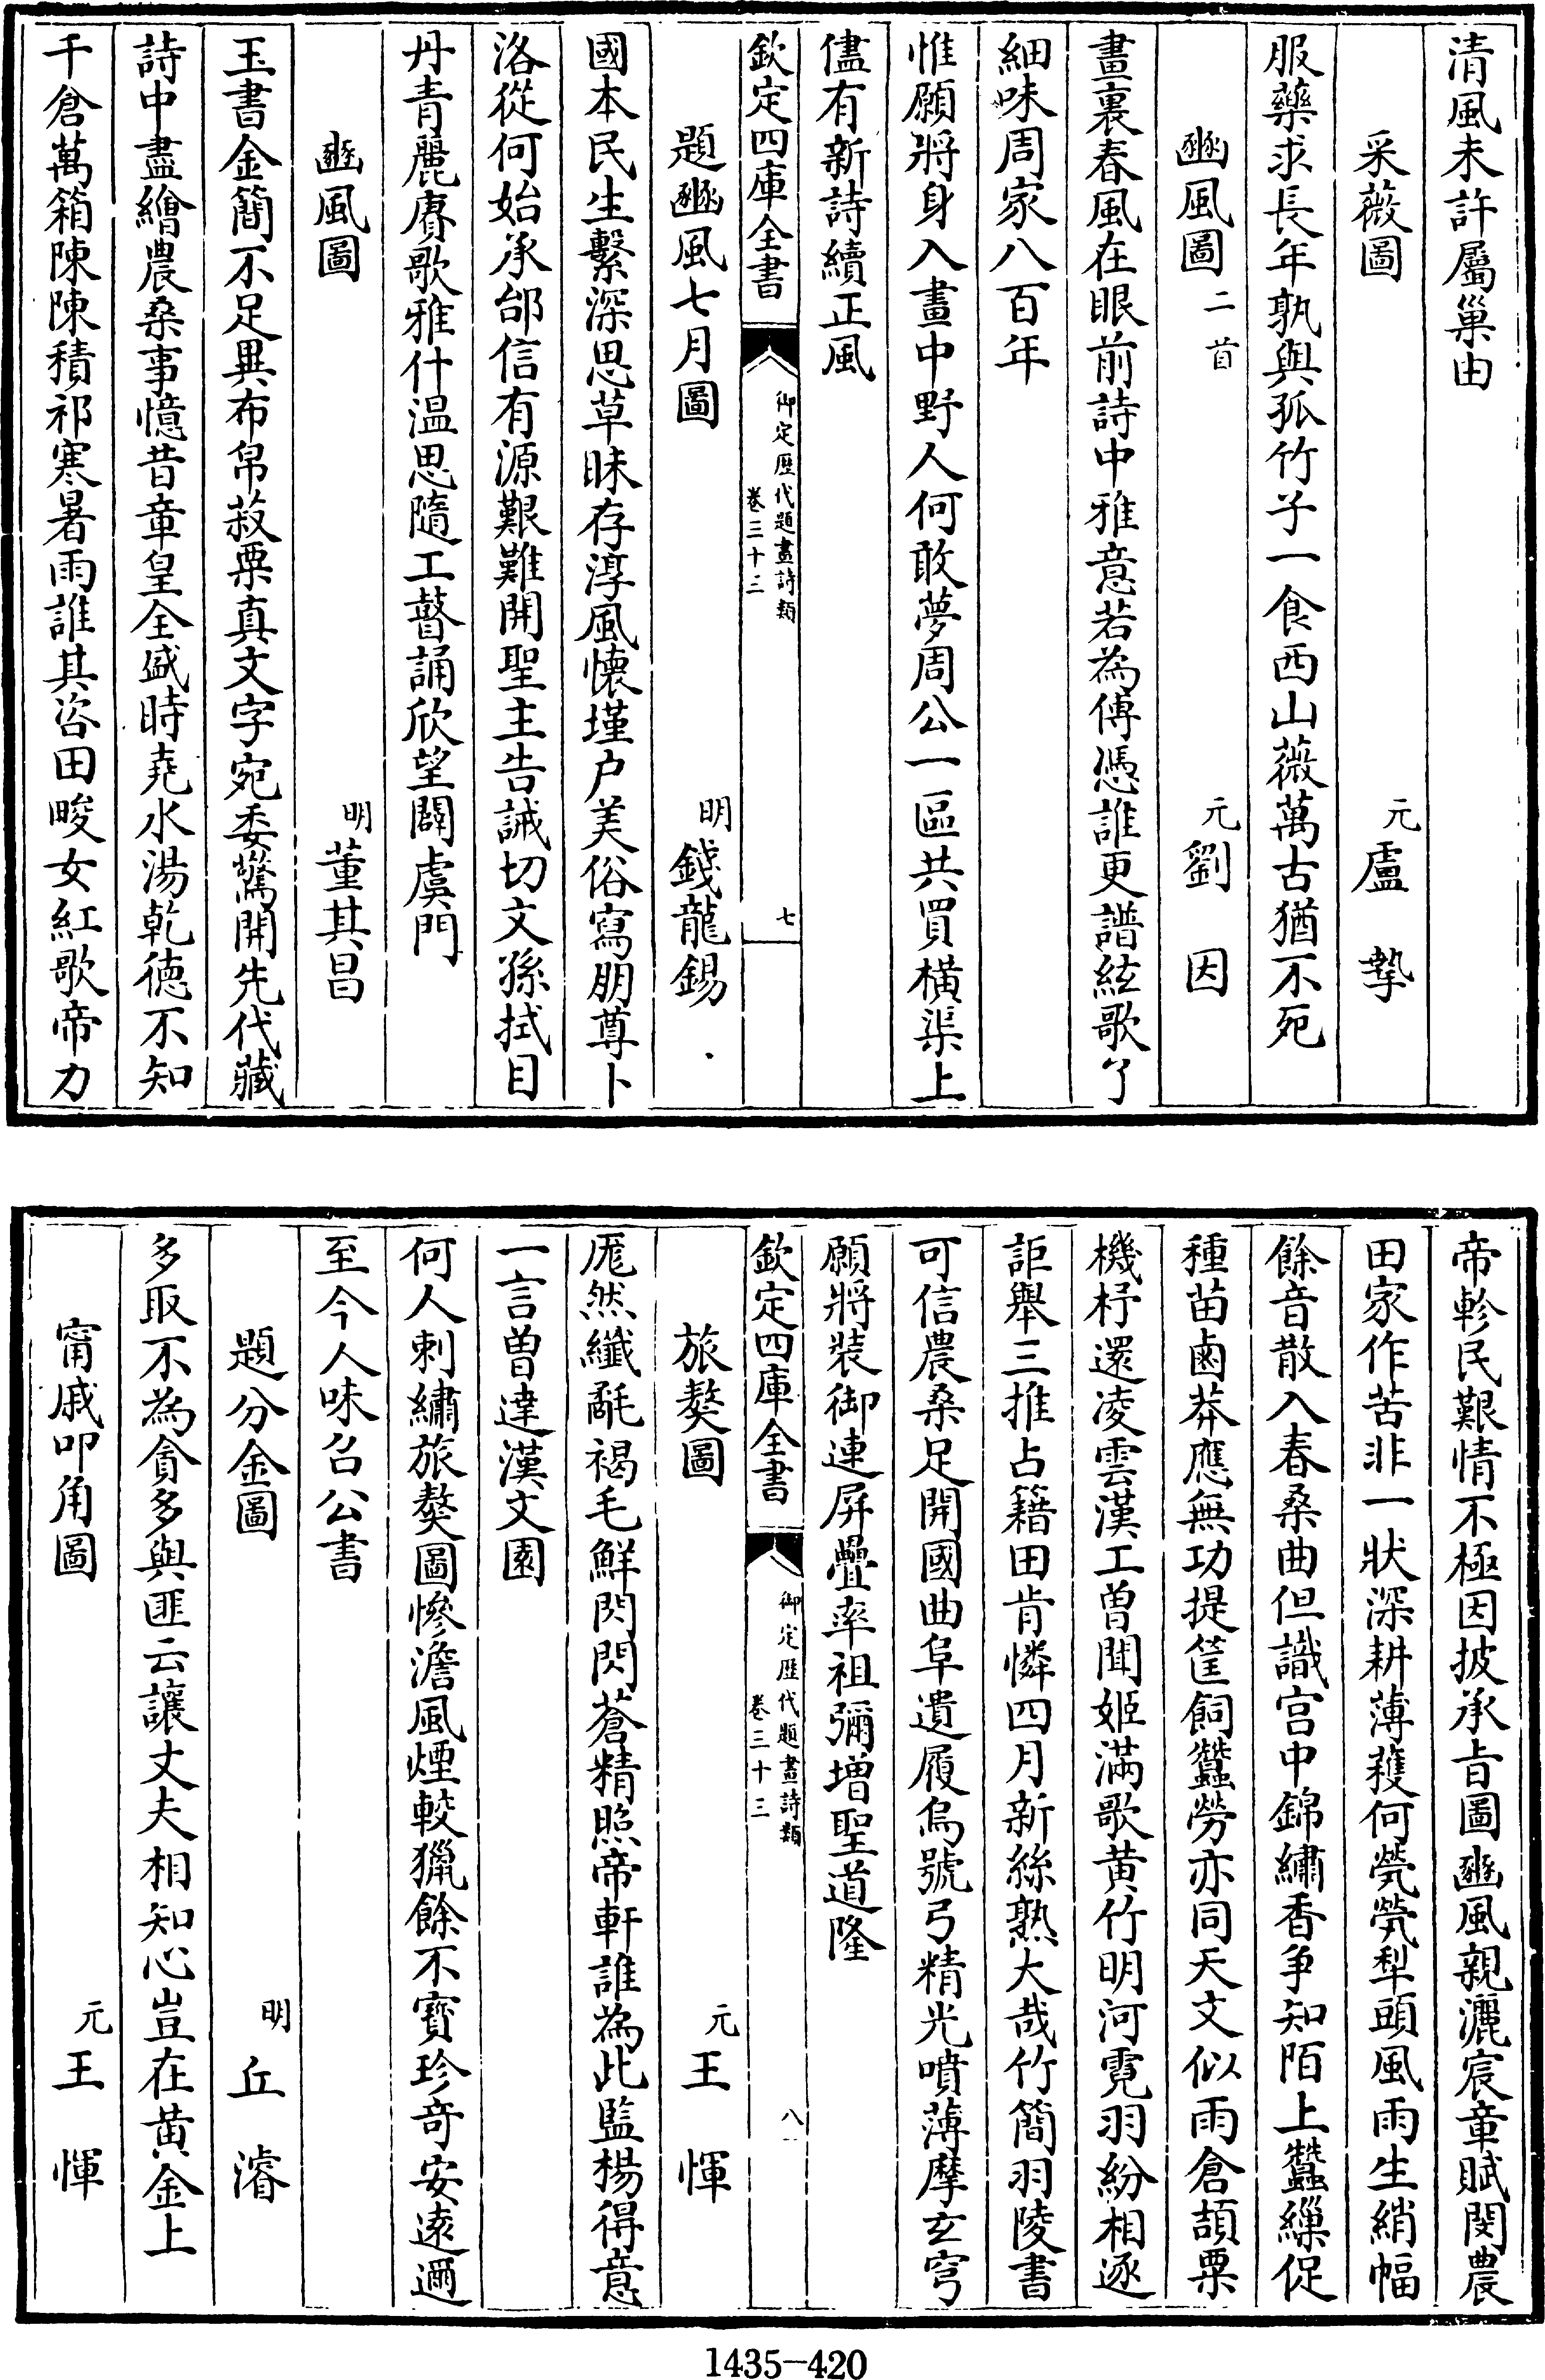 清風未許屬巢由
采薇圖
元盧摯
服藥求長年孰與孤竹子一食西山薇萬古猶不死
豳風圖二首
元劉因
畫裏春風在眼前詩中雅意若為傳憑誰更譜絃歌了
細味周家八百年
惟願將身入畫中野人何敢夢周公一區共買橫渠上
儘有新詩續正風
欽定四庫全書
御定歷代題畫詩類
卷三十三
七
題豳風七月圖
明錢龍錫
國本民生繫深思草昧存淳風懷墐户美俗寫朋尊卜
洛從何始承邰信有源艱難開聖主告誡切文孫拭目
丹青麗賡歌雅什温思隨工瞽誦欣望闢虞門
豳風圖
明董其昌
玉書金簡不足異布帛菽粟真文字宛委驚開先代藏
詩中盡繪農桑事憶昔章皇全盛時堯水湯乾徳不知
千倉萬箱陳陳積祁寒暑雨誰其咨田畯女紅歌帝力
帝軫民艱情不極因披承㫖圖豳風親灑宸章賦閔農
田家作苦非一狀深耕薄穫何煢煢犁頭風雨生綃幅
餘音散入春桑曲但識宫中錦繡香争知陌上蠶繅促
種苗鹵莽應無功提筐飼蠶勞亦同天文似雨倉頡粟
機杼還凌雲漢工曽聞姬滿歌黄竹明河霓羽紛相逐
詎舉三推占籍田肯憐四月新絲熟大哉竹簡羽陵書
可信農桑足開國曲阜遺履烏號弓精光噴薄摩玄穹
願將裝御連屏疊率祖彌增聖道隆
欽定四庫全書
御定歷代題畫詩類
卷三十三
八
旅獒圖
元王惲
厖然纖毳褐毛鮮閃閃蒼精照帝軒誰為此監楊得意
一言曽達漢文園
何人刺繡旅獒圖慘澹風煙較獵餘不寳珍奇安遠邇
至今人味召公書
題分金圖
明丘濬
多取不為貪多與匪云讓丈夫相知心豈在黄金上
甯戚叩角圖
元王惲
1435-420